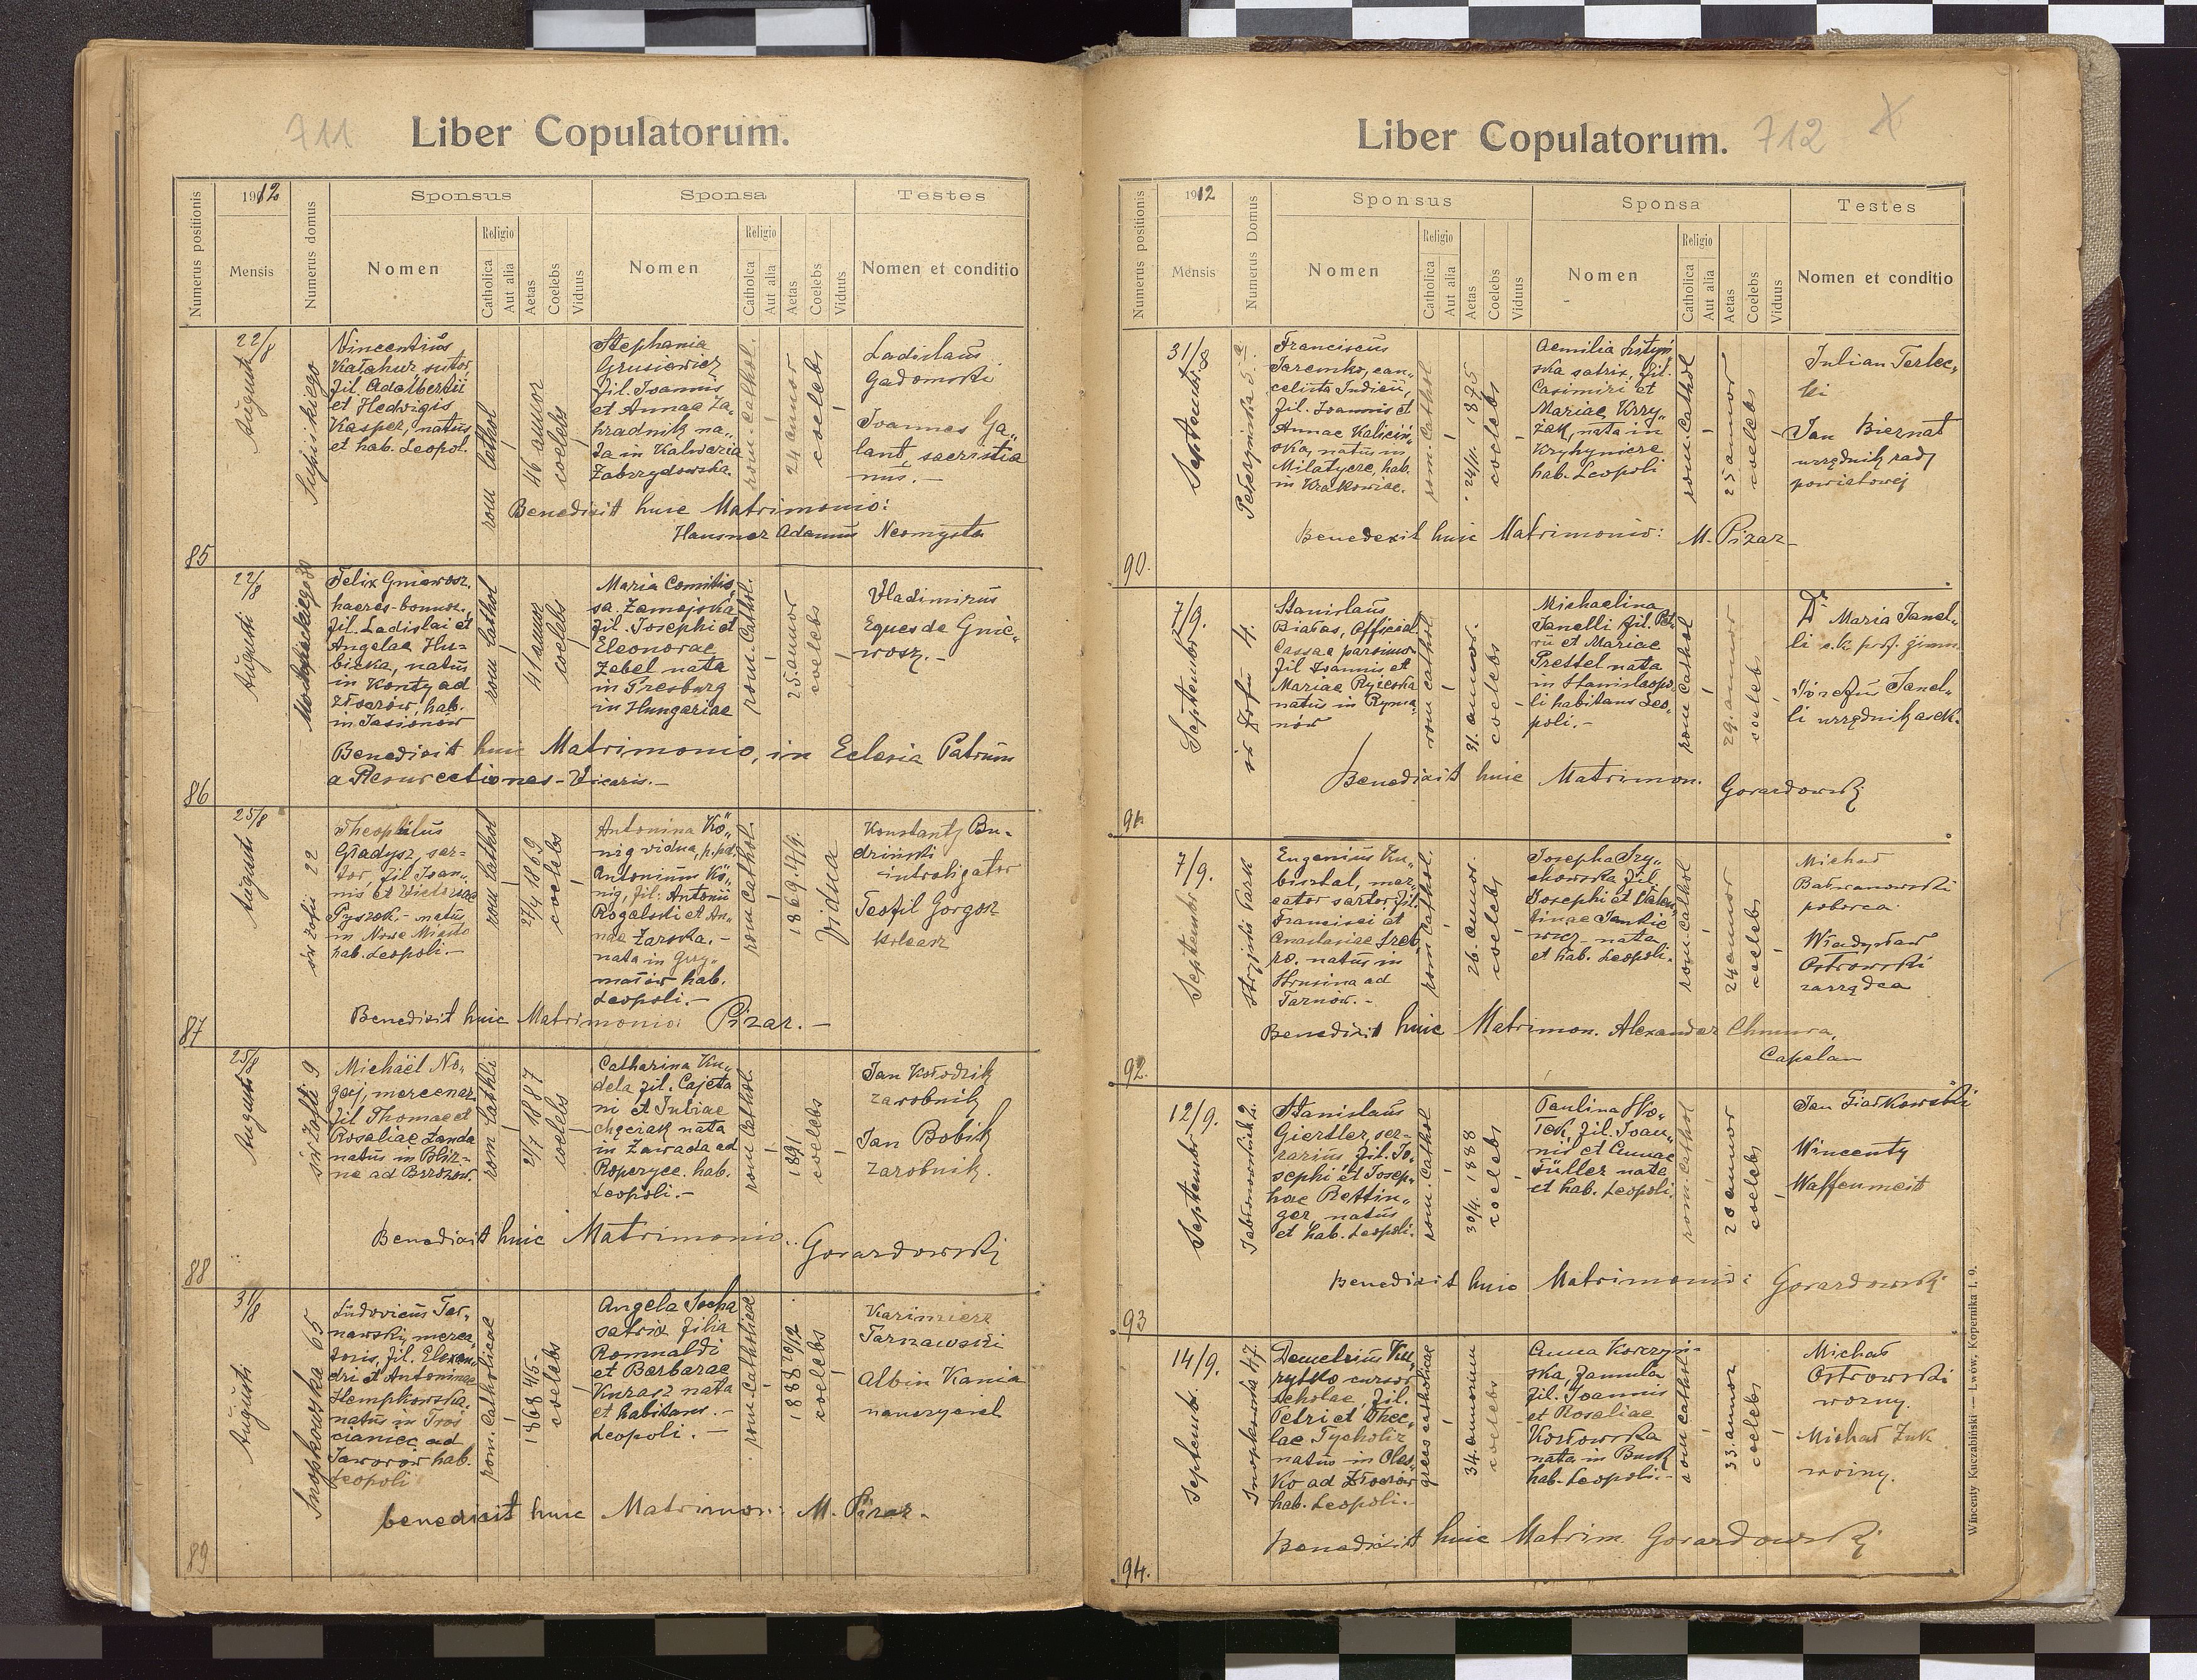 711
Liber Copulatorum.
Numerus positionis
1912
Mensis
Numerus domus
Sponsus
Nomen
Religio
Catholica
Aut alia
Aetas
Coelebs
Viduus
Sponsa
Nomen
Religio
Catholca
Aut alia
Aetas
Coelebs
Viduus
Testes
Nomen et conditio
85
22/8
Augusti
Vincentius
Kałahur sutor,
fil. Adalbertii
et Hedvigis
Kasper, natus
et hab. Leopol.
rom cathol
46 annor
coelebs
Stephania
Grusiewicz
fil. Joannis
et Annae Za„
hradnik na„
ta in Kalwaria
Zabrzydowska.
rom. cathol.
24 annor
coelebs
Ladislaus
Gadomski
Joannes Ga„
lant sacristia
nus.-
Benedixit huic Matrimonio:
Hausner Adamus Neomysta
86
22/8
Augusti
Mochnackiego 30
Felix Gniewosz
haeres bonor.
fil. Ladislai et
Angelae Hu=
bicka, natus
in Konty ad
Złoczów, hab.
in Jasionów
rom cathol
41 annor
coelebs
Maria Comitis„
sa Zamojska
fil. Josephi et
Eleonorae
Zebel nata
in Presburg
in Hungariae
rom. Cathol.
25. annor
coelebs
Vladimirus
Eques de Gnie„
wosz.-
Benedixit huic Matrimonio, in Eclesia Patrum
a Resurectiones - Vicaris.-
87
25/8
August.
św Zofii 22
Theophilus
Gładysz, sar=
tor, fil Joan„
nis et Victoriae
Pyszek.- natus
in Nowe Miasto
hab. Leopoli.-
rom cathol
27/4 1869
coelebs
Antonina Kö„
nig vidua, p. pd.
Antonium Kö„
nig, fil: Antonii
Rogalski et An„
nae Zarska.-
nata in Grzy„
małów hab.
Leopoli.-
rom cathol.
1869.
Vidua
Konstanty Bu-
driński
introligator
Teofil Gorgosz
Benedixit huic Matrimonio: Pizar.-
88
25/8
Augusti
św Zofii 9
Michaël No„
gaj, mercenar
fil Thomae et
Rosaliae Zanda
natus in Bliz-
ne ad Brzozów.
rom cathli
21/7 1887
coelebs
Catharina Ku„
dela fil. Cajeta
ni et Juliae
Chęciak nata
in Zawada ad
Roperyce. hab.
Leopoli.-
rom Cathol.
1891
coelebs
Jan Kołodzik
zarobnik
Jan Bobik
zarobnik.
Benedixit huic Matrimonio.. Gorardowski
89
31/8
Augusti
Snopkowska 65
Ludovicus Tar„
nawski, merca
toris, fil. Elexan„
dri et Antoninae
Hempkowska.
natus in Tros
cianiec ad
Jaworów hab.
Leopoli
rom. catholicae
1868 4/5.
coelebs
Angela Socha
satrix filia
Romualdi
et Barbarae
Kurasz nata
et habitans.-
Leopoli.-
rom-catholicae
1888 10/12
coelebs
Kazimierz
Tarnawski
Albin Kania
nauczyciel
benedixit huic Matrimon: M. Pizar.
712
Liber Copulatorum.
Numerus positionis
1912
Mensis
Numerus Domus
Sponsus
Nomen
Religio
Catholica
Aut alia
Aetas
Coelebs
Viduus
Sponsa
Nomen
Religio
Catholica
Aut alia
Aetas
Coelebs
Viduus
Testes
Nomen et conditio
90.
31/8
Septembr
Franciscus
Jaremko, can„
celista Judicii,
fil. Joannis et
Annae Kaliciń„
ska, natus in
Milatycze, hab.
in Krakowiac.
rom. Cathol
24/11. 1875
coelebs
Aemilia
ska satrix, fil.
Casimiri et
Mariae Krzy„
żak, nata in
Kryhynicze
hab. Leopoli
rom. Cathol
25 annor
coelebs
Julian Terlec„
ki
Jan Biernat
urzędnik rady
powiatowej
Benedixit huic Matrimonio: M. Pizar
91.
7/9.
Septembr
św Zofii 4.
Stanislaus
Białas, official
Cassae parsimon.
fil Joannis et
Mariae Ryżeska
natus in Ryma„
nów
rom cathol
31. annor.
coelebs
Michaelina
Janelli fil. Pet„
rii et Mariae
Prestel nata
in Stanislaopo„
li habitans Leo„
poli.-
rom Cathol
29. annor
coelebs
Dr Maria Janel„
li c.k. prof. gimn
Józefa Janel„
li urzędnik asek.
Benedixit huic Matrimon. Gorardowski
92.
7/9.
Septembr
Stryjski Park
Eugenius Ku„
bisztal, mer„
cator sartor fil.
Francisci et
Anastasiae
natus in
Strusina ad
Tarnów.-
rom Cathol.
26. annor.
coelebs
Josepha Szy„
chowska fil.
Josephi et Valen„
tinae Jankie
wicz - nata
et hab. Leopoli.
rom. Cathol
24 annor
coelebs
Michał
poborca
Władysław
Ostrowski
zarządca
Benedixit huic Matrimon. Alexander Chmura,
Capelan
93
12/9.
Septembr
Jabłonowskich 9
Stanislaus
Giertler, ser=
rarius fil. Jo„
sephi et Josep„
hae Rettin„
ger, natus
et hab. Leopoli.
rom. Cathol
30/4. 1888
coelebs
Paulina Wo„
łek, fil. Joan„
nis et Annae
Füller nata
et hab. Leopoli.
rom. Cathol
20 annor
coelebs
Jan Fiałkowski
Wincenty
Waffenmeist
Benedixit huic Matrimonio: Gorardowski
94.
14/9.
Septembr.
Snopkowska 47
Demetrius Ku„
ryłko cursor
scholae, fil.
Petri et Thec„
lae Tycholiz
natus in Oles„
ko ad Złoczów
hab. Leopoli.-
greco catholicae
34. annorum
coelebs
Anna Korczyń-
ska, famula
fil. Joannis
et Rosaliae
Kozłowska
nata in Busk
hab. Leopoli.-
rom Cathol
33. annor
coelebs
Michał
Ostrowski
woźny.
Michał Żuk
woźny.
Benedixit huic Matrim. Gorardowski
Wincenty Kuczabiński — Lwów, Kopernika l. 9.